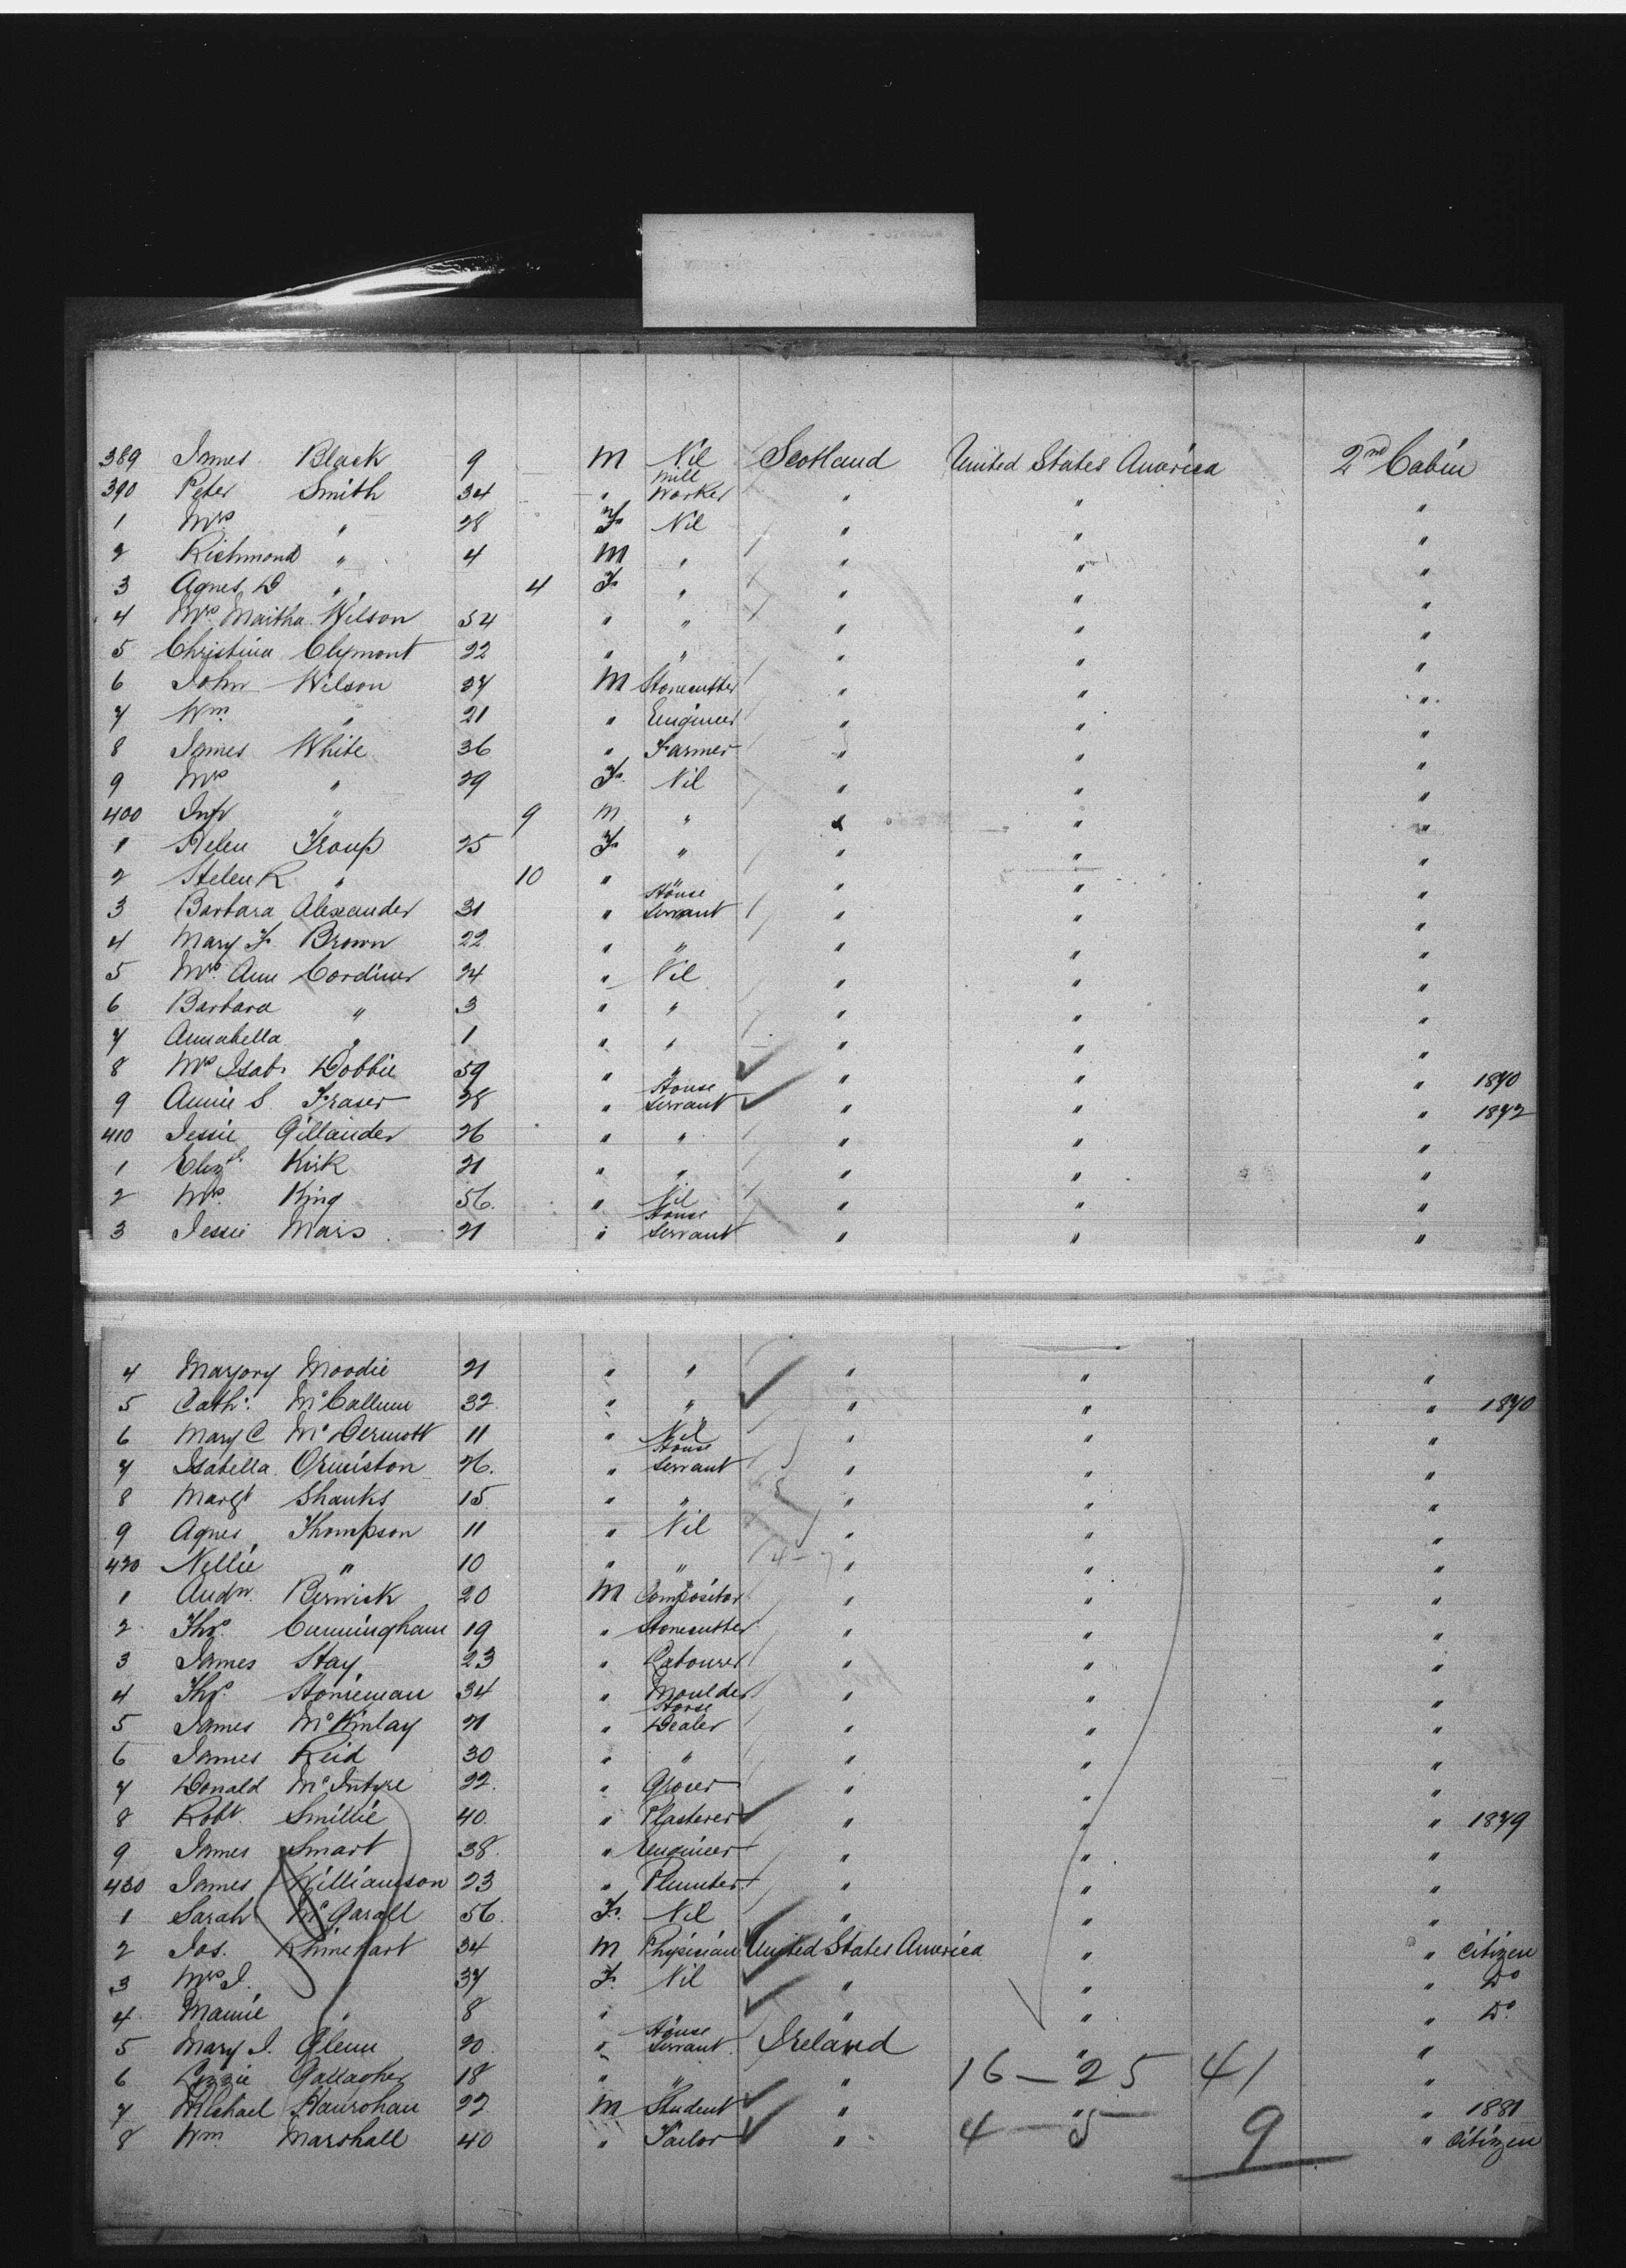 389 James Black 9 M Nil Scotland United States America 2nd Cabin
390 Peter Smith 34 " Mill Worker " " "
1 Mrs " 28 F. Nil " " "
2 Richmond " 4 M " " " "
3 Agnes D " 4 F. " " " "
4 Mrs Martha Wilson 54 " " " " "
5 Christina Clymont 22 " " " " "
6 John Wilson 27 M Stonecutter " " "
7 Wm. " 21 " Engineer " " "
8 James White 36 " Farmer " " "
9 Mrs " 29 F. Nil " " "
400 Inft " 9 M " " " "
1 Helen Troup 25 F. " " " "
2 Helen R " 10 " " " " "
3 Barbara Alexander 31 " House Servant " " "
4 Mary F. Brown 22 " " " " "
5 Mrs. Ann Cordiner 24 " Nil " " "
6 Barbara " 3 " " " " "
7 Annabella " 1 " " " " "
8 Mrs Isab. Dobbie 59 " " " " " 1870
9 Annie S. Fraser 28 " House Servant " " " 1872
410 Jessie Gillander 26 " " " " "
1 Elizth. Kirk 21 " " " " "
2 Mrs. King 56. " Nil " " "
3 Jessie Mars 21 " House Servant " " "
4 Marjory Moodie 21 " " " " "
5 Cath. McCallum 32 " " " " " 1870
6 Mary C McDermott 11 " Nil " " "
7 Isabella Ormiston 26. " House Servant " " "
8 Margt Shanks 15 " " " " "
9 Agnes Thompson 11 " Nil " " "
420 Nellie " 10 " " " " "
1 Andw. Berwick 20 M Compositor " " "
2 Thos. Cunningham 19 " Stonecutter " " "
3 James Hay 23 " Labourer " " "
4 Thos. Stonieman 34 " Moulder " " "
5 James McKinlay 21 " Horse Dealer " " "
6 James Reid 30 " " " " "
7 Donald McIntyre 22. " Grocer " " "
8 Robt. Smillie 40. " Plasterer " " " 1879
9 James Smart 38. " Engineer " " "
430 James Williamson 23 " Plumber " " "
1 Sarah McGarall 56. F. Nil " " "
2 Jas. Rhinehart 34 M Physician United States America " " Citizen
3 Mrs J. " 37 F. Nil " " " Do
4 Mamie " 8 " " " " Do.
5 Mary J. Glenn 20. " House Servant. Ireland " "
6 Lizzie Gallagher 18 " " " 16 — 25 41 "
7 Michael Hanrohan 22 M Student " " " 1881
8 Wm. Marshall 40 " Tailor " 4 — 5 9 " Citizen